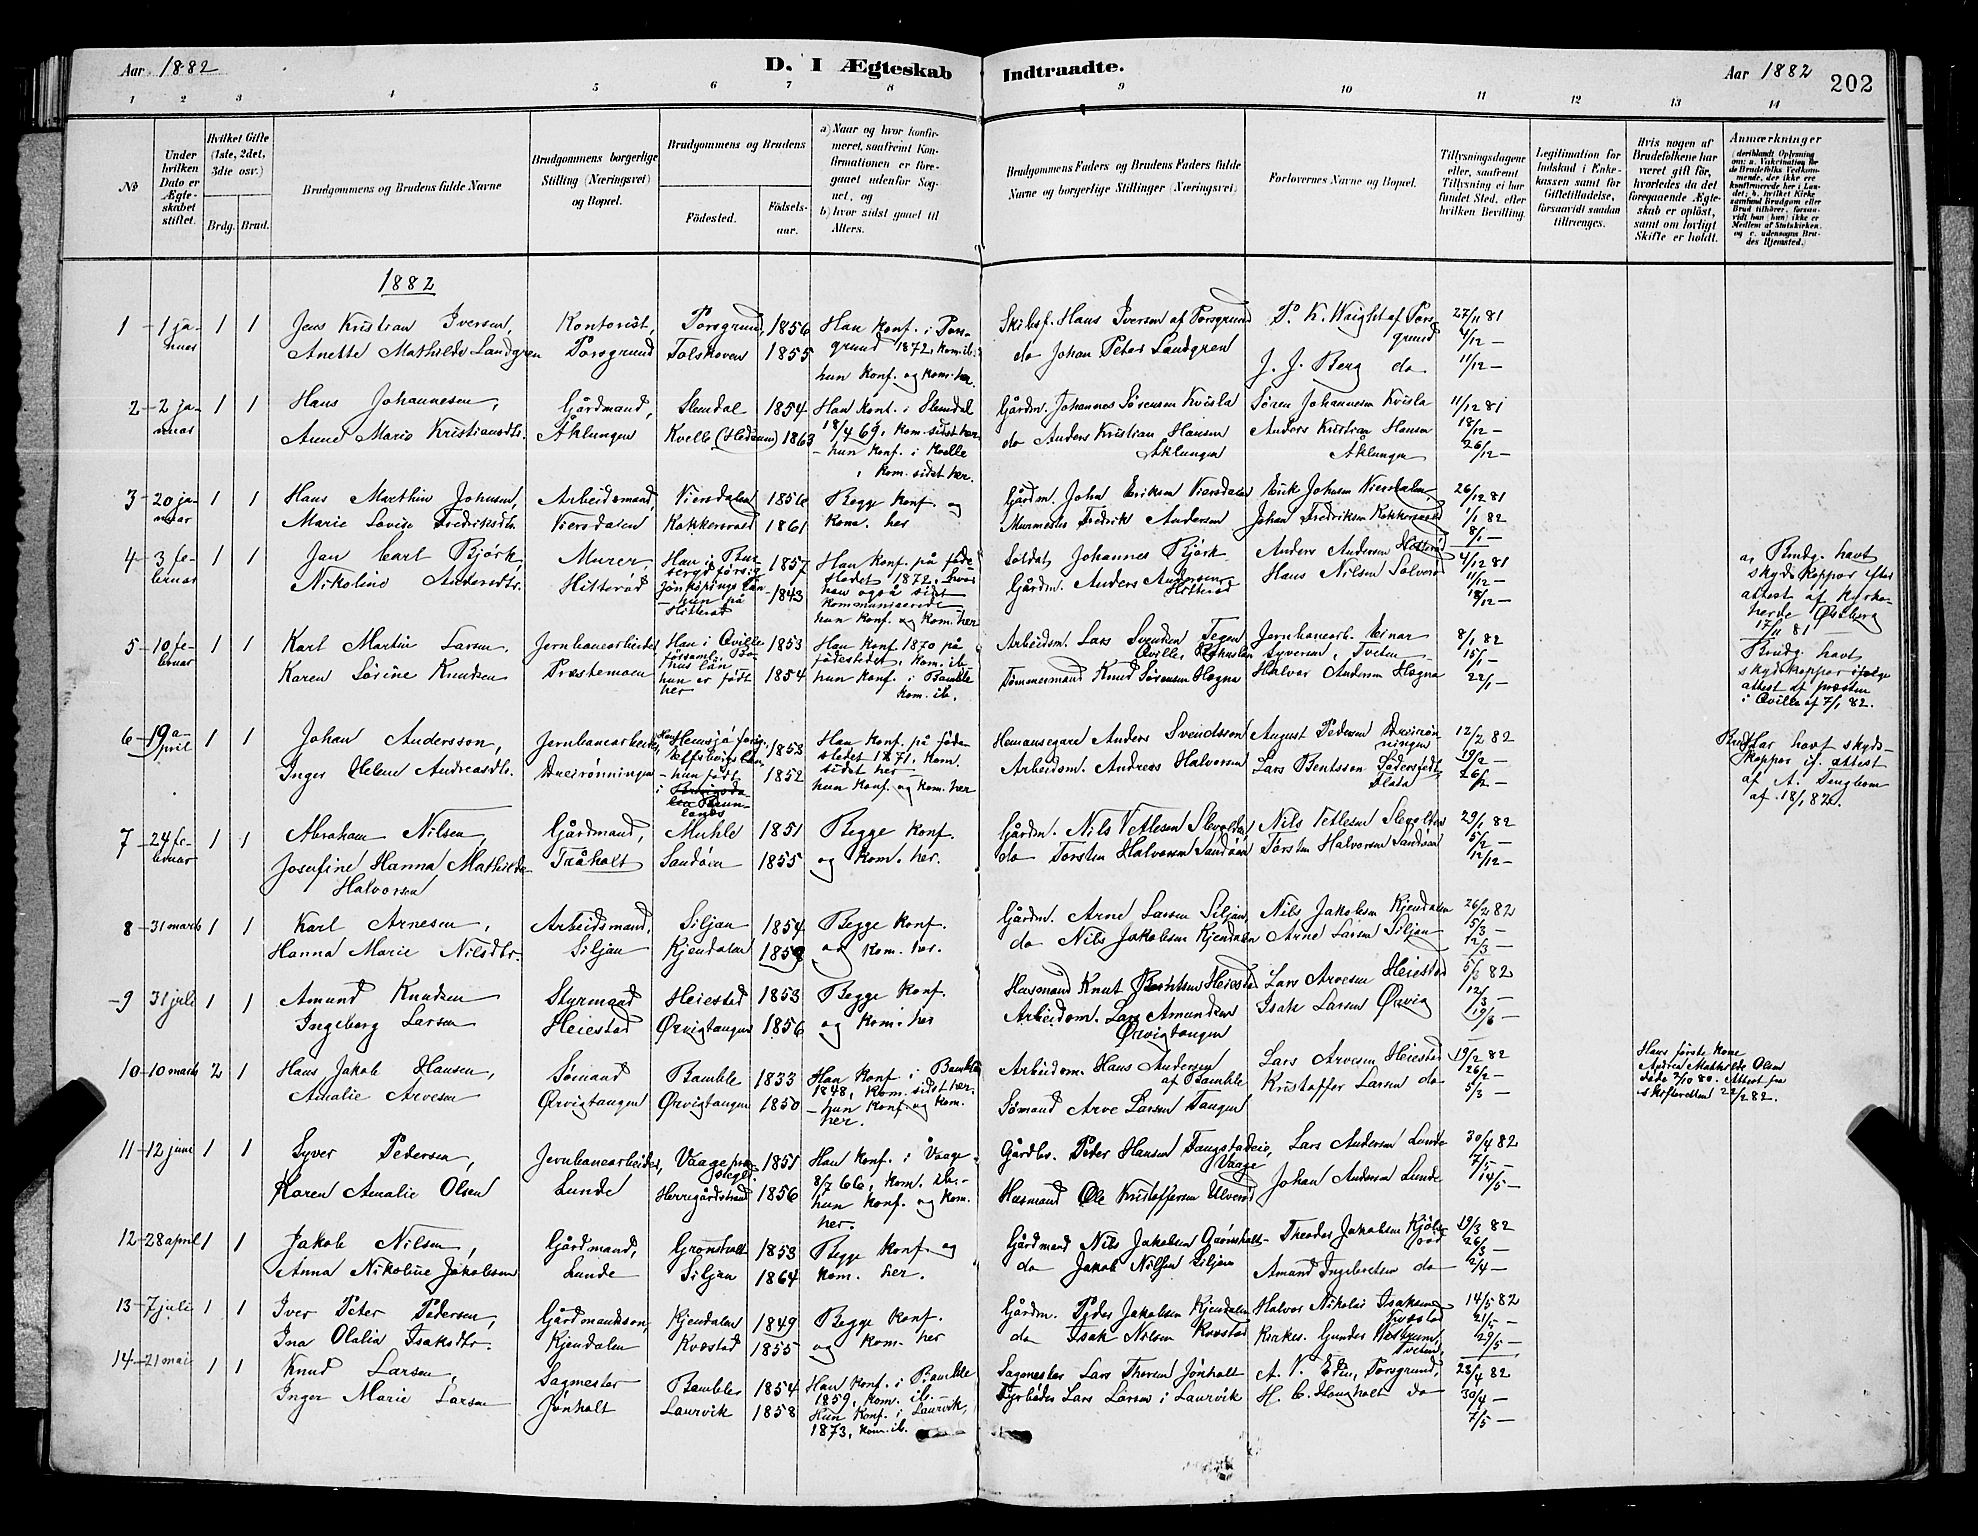 Aar 1882 D. I Ægteskab Indtraadte. Aar 1882 202
1 2 3 4 5 6 7 8 9 10 11 12 13 14
No
Under hvilken Dato er Ægteskabet stiftet.
Hvilket Gifte (1ste, 2det, 3die osv.)
Brdg. Brud.
Brudgommens og Brudens fulde Navne
Brudgommens borgerlige Stilling (Næringsvei) og Bopæl.
Brudgommens og Brudens
Fødested. Fødselsaar.
a) Naar og hvor konfirmeret, saafremt Konfirmationen er foregaaet udenfor Sognet, og
b) hvor sidst gaaet til Alters.
Brudgommens Faders og Brudens Faders fulde Navne og borgerlige Stillinger (Næringsvei)
Forlovernes Navne og Bopæl.
Tillysningsdagene eller, saafremt Tillysning ei har fundet Sted, efter hvilken Bevilling.
Legitimation for Indskud i Enkekassen samt for Giftetilladelse, forsaavidt saadan tiltrænges.
Hvis nogen af Brudefolkene har været gift før, hvorledes da det foregaaende Ægteskab er opløst, samt om lovligt Skifte er holdt.
Anmærkninger
1882
1 1 januar 1 1 Jens Kristian Iversen, Kontorist, Porsgrund, 1856 Han konf. i Porsgrund 1872, kom. ib. Skibsf. Hans Iversen af Porsgrund P. K. Waight af Porsgrund 27/11 81
Anette Mathilde Landgren Porsgrund Tolskoven 1855 hun konf. og kom. her. do Johan Peter Landgren J. J. Berg do 4/12 – 11/12 –
2 2 januar 1 1 Hans Johannesen, Gårdmand, Slemdal 1854 Han konf. i Slemdal 18/4 69, kom. sidst her Gårdm. Johannes Sørensen Kvisla Søren Johannesen Kvisla 11/12 81
Anne Marie Kristiansdtr. Åklungen Kvelle (Hedrum) 1863 – hun konf. i Kvelle, kom. sidst her. do Anders Kristian Hansen Åklungen Anders Kristian Hansen Åklungen 18/12 – 26/12 –
3 20 januar 1 1 Hans Marthin Johnsen, Arbeidsmand, Viersdalen 1856 Begge konf. og Gårdm. John Eriksen Viersdalen Erik Johnsen Viersdalen 26/12 81
Marie Lovise Fredriksdtr. Viersdalen Kokkersvold 1861 kom. her Murmester Fredrik Andersen Johan Fredriksen Kokkersvold 1/1 82 8/1 –
4 3 februar 1 1 Jan Carl Bjørk, Murer, Han i 1857 Han konf. på fødestedet 1872, hvor Soldat Johannes Bjørk Anders Andersen Hitterød 4/12 81
Nikoline Andersdtr. Hitterød Jönköpings län – hun på Hitterød 1843 han også sidst kommuniserede hun konf. og kom. her Gårdm. Anders Andersen Hitterød Hans Nilsen Solverød 11/12 – 18/12 –
a. Brudg. havt skydskopper efter attest af kyrkoherde Østberg 17/11 81
5 10 februar 1 1 Karl Martin Larsen, Jernbanearbeider Han i Qville 1853 Han konf. 1870 på fødestedet, kom. ib. Arbeidsm. Lars Svensken Tegen Qville, Jernbanearb. Einar Syversen, Tveten 8/1 82
Karen Sørine Knudsen Præstemoen hun er født her 1854 hun konf. i Bamble kom. ib. Tømmermand Knud Sørensen Høgna Halvor Andersen Høgna 15/1 – 22/1 –
Brudg. havt skydskopper ifølge attest af præsten i Qville af 7/1 82.
6 19 april 1 1 Johan Andersson, Jernbanearbeider, 1853 Han konf. på fødestedet 1871, kom. sidst her – Hemansegare Anders Svendsson August Pedersen Dreirønningen 12/2 82
Inger Helene Andreasdtr. Dreirønningen – hun født i 1852 hun konf. og kom. her Arbeidsm. Andreas Halvorsen Lars Bentsson 19/2 – 26/2 –
Brudg. Har havt skydskopper if. attest af A. Ljungbom af 18/1 82.
7 24 februar 1 1 Abraham Nilsen, Gårdmand, Muhle 1851 Begge konf. Gårdm. Nils Vetlesen Slevolden Nils Vetlesen Slevolden 29/1 82
Josefine Hanna Mathilde Halvorsen Tråholt Sandøen 1855 og kom. her. do Torsten Halvorsen Sandøen Torsten Halvorsen Sandøen 5/2 – 12/2 –
8 31 marts 1 1 Karl Arnesen, Arbeidsmand, Siljan 1854 Begge konf. Gårdm. Arne Larsen Siljan, Nils Jakobsen Kjendalen 26/2 82
Hanna Marie Nilsdtr. Siljan Kjendalen 1859 og kom. her. do Nils Jakobsen Kjendalen Arne Larsen Siljan 5/3 – 12/3 –
9 31 juli 1 1 Amund Knudsen Styrmand Heiestad 1853 Begge konf. Husmand Knut Berntsen Heiestad Lars Arvesen Heiestad 5/3 82
Ingeborg Larsen Heiestad Ørvigtangen 1856 og kom. her Arbeidsm. Lars Amundsen Ørvigtangen Isak Larsen Ørvig 12/3 – 19/3 –
10 10 marts 2 1 Hans Jakob Hansen, Sømand Bamble 1833 Han konf. i Bamble 1848, kom. sidst her. Arbeidsm. Hans Andersen af Bamble Lars Arvesen Heiestad 19/2 82
Amalie Arvesen Ørvigtangen Ørvigtangen 1850 – hun konf. og kom. her. Sømand Arve Larsen Tangen Kristoffer Larsen do 26/2 – 5/3 –
Hans første kone Andrea Mathilde Olsen døde 2/10 80. Attest fra skifteretten 22/2 82.
11 12 juni 1 1 Syver Pedersen, Jernbanearbeider, Vaage præstegjeld. 1851 Han konf. i Vaage 8/7 66, kom. ib. – Gårdbr. Peder Hansen Vaage Lars Andersen Lunde 30/4 82
Karen Amalie Olsen Lunde Herregårdstrand 1856 hun konf. og kom. her. Husmand Ole Kristoffersen Ulverød Johan Andersen Lunde 7/5 – 14/5 –
12 28 april 1 1 Jakob Nilsen, Gårdmand, Grønsholt 1853 Begge konf. og Gårdmand Nils Jakobsen Grønsholt Theodor Jakobsen 19/3 82
Anna Nikoline Jakobsen Lunde Siljan 1864 kom. her. do Jakob Nilsen Siljan Amund Ingebretsen do 26/3 – 2/4 –
13 7 juli 1 1 Iver Peter Pedersen, Gårdmandssøn, Kjendalen 1849 Begge konf. Gårdm. Peder Jakobsen Kjendalen Halvor Nikolai Isaksen Kvestad 14/5 82
Ina Olalia Isaksdtr. Kjendalen Kvestad 1855 og kom. her do Isak Nilsen Kvestad Kirkes. Gunder Westrum, Tveten 21/5 – 29/5 –
14 21 mai 1 1 Knud Larsen, Sagmester Bamble 1854 Han konf. i Bamble 1859, kom. ib. Sagmester Lars Thoresen Jønholt A. V. Porsgrund, 23/4 82
Inger Marie Larsen Jønholt Laurvik 1858 Hun konf. i Laurvik, 1873, kom. ib. Fyrbøder Lars Larsen i Laurvik H. C. Haugholt do 30/4 – 7/5 –